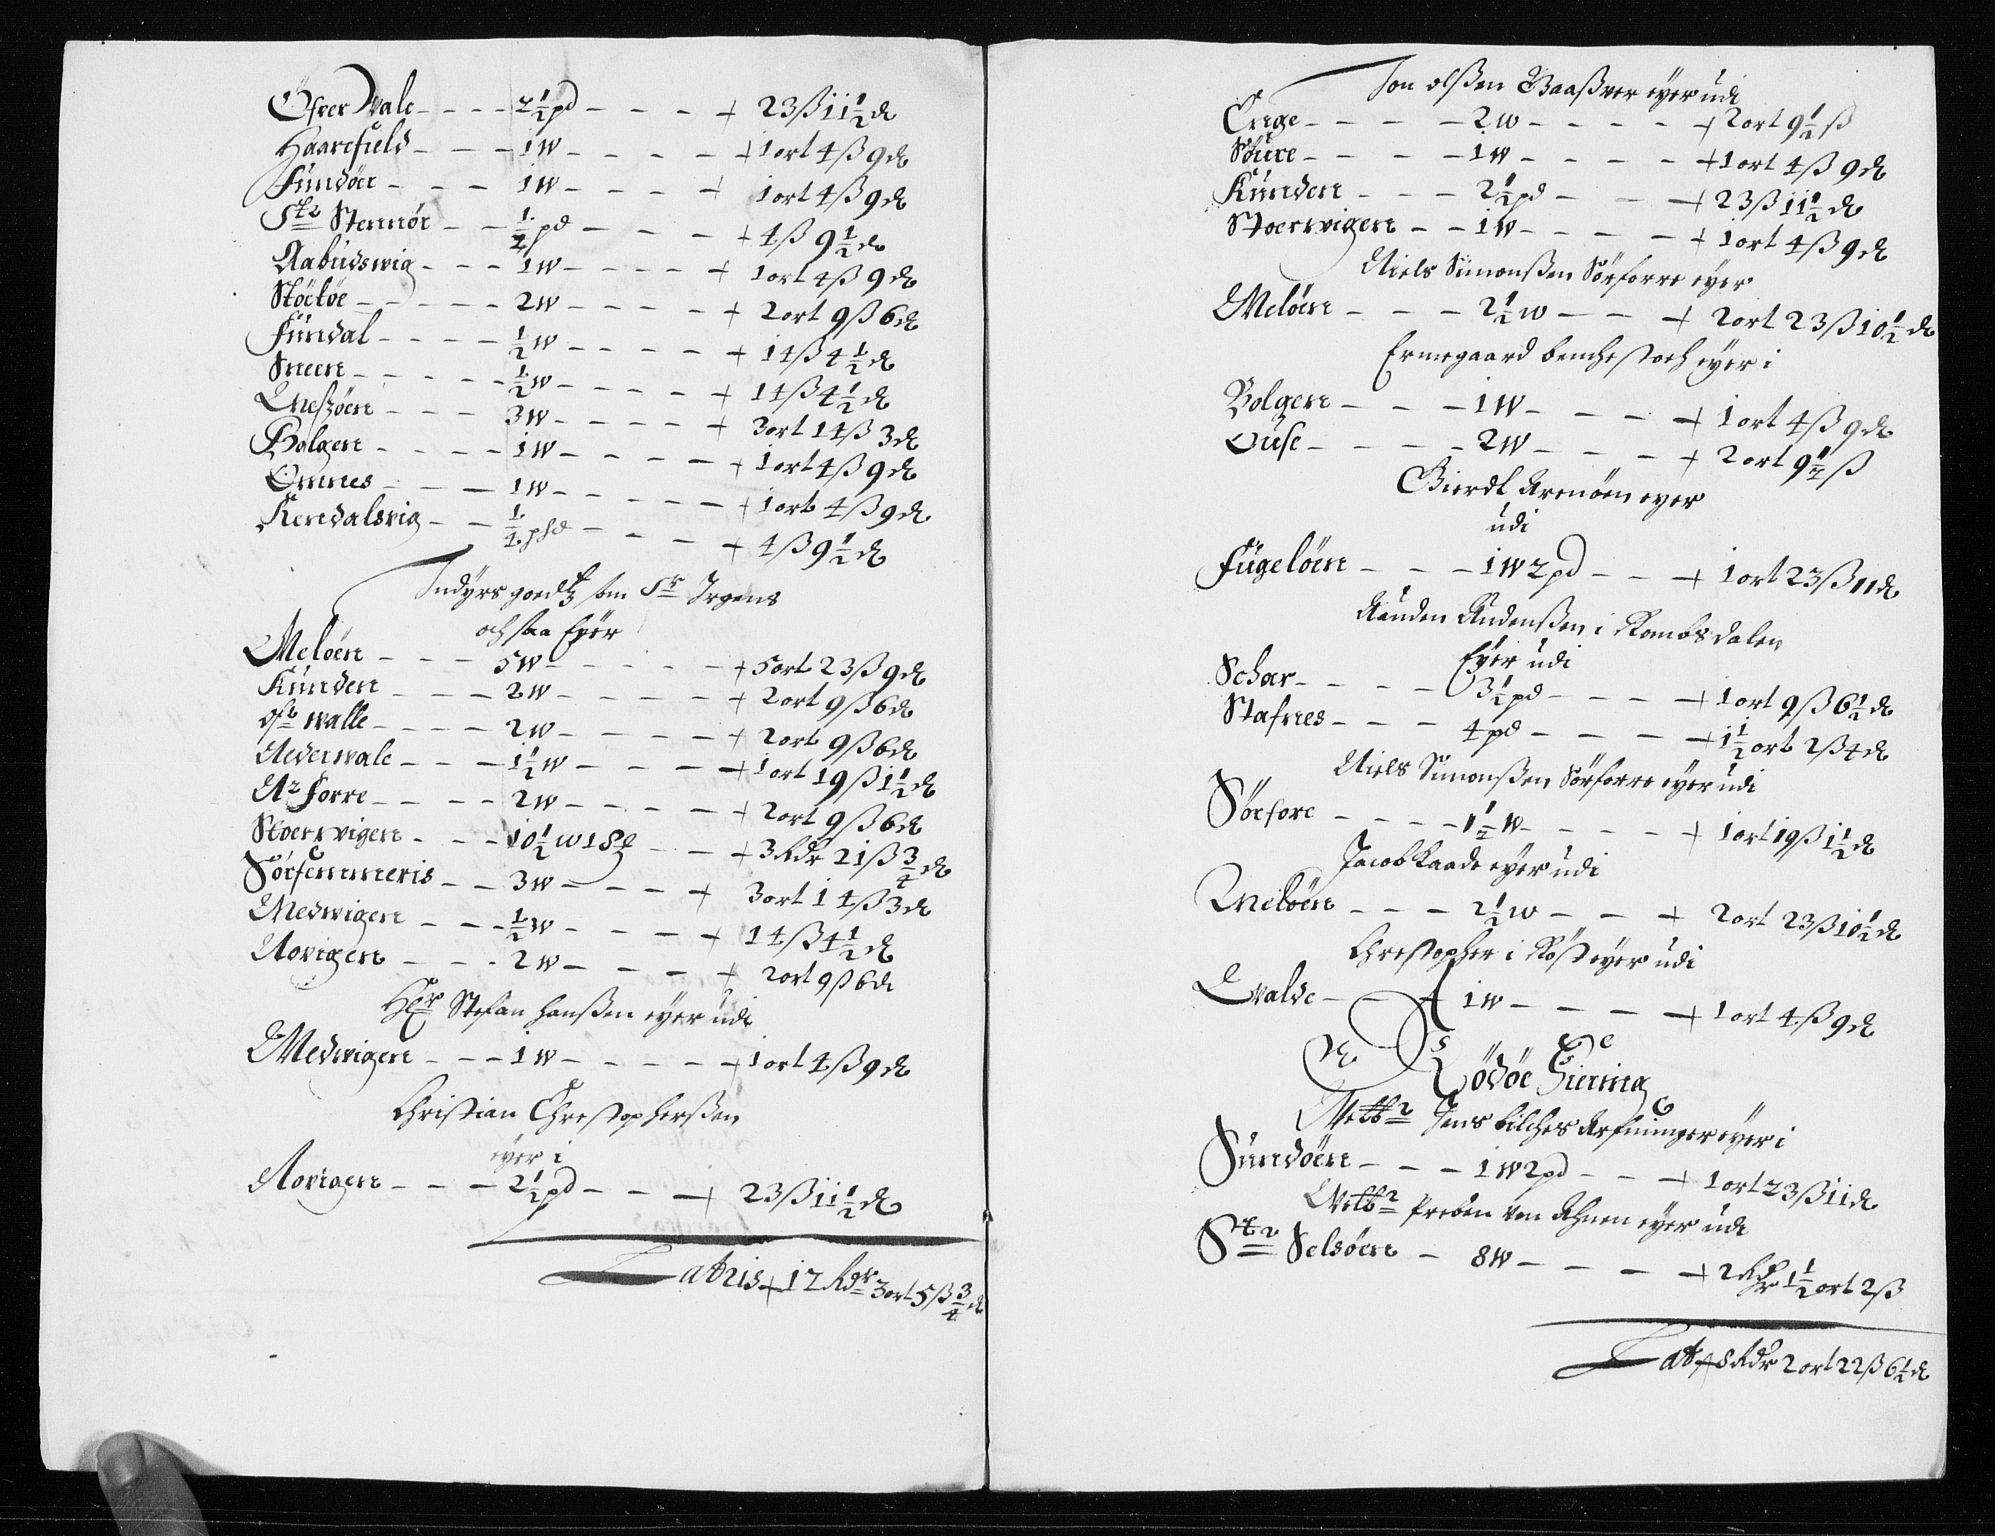 Öfver Wale - - - - 2½ pd - - - + 23 ß 11½ ₰
Haarefield - - - 1 W - - - - + 1 ort 4 ß 9 ₰
Fundöer - - - 1 W - - - + 1 ort 4 ß 9 ₰
St: Stennör - - ¼ pd - - - + 4 ß 9½ ₰
Aabudswig - - - 1 W - - - - + 1 ort 4 ß 9 ₰
Stöctöe - - - - - 2 W - - - - + 2 ort 9 ß 6 ₰
Fundal - - - - ½ W - - - - + 14 ß 4½ ₰
Sneen - - - - - ½ W - - - - + 14 ß 4½ ₰
Mesöen - - - 3 W - - - - + 3 ort 14 ß 3 ₰
Bolgen - - - - 1 W - - - - + 1 ort 4 ß 9 ₰
Omnes - - - 1 W - - - - - + 1 ort 4 ß 9 ₰
Kendalsvig - - ¼ phd - - - - + 4 ß 9½ ₰
Indyrs goedtz som Sr Irgens
och staa Eyer
Melöen - - - 5 W - - - - - + 5 ort 23 ß 9 ₰
Kunden - - - 2 W - - - - - + 2 ort 9 ß 6 ₰
ofr walle - - - - 2 W - - - - - + 2 ort 9 ß 6 ₰
Nederwale - - - 1½ W - - - - + 1 ort 19 ß 1½ ₰
Nr Forre - - - - 2 W - - - - + 2 ort 9 ß 6 ₰
Stoervigen - - - 10½ W 18 ℔ - - + 3 Rdr 21 ß ¾ ₰
Sörfemmeris - - 3 W - - - - + 3 ort 14 ß 3 ₰
Medwigen - - - ½ W - - - - + 14 ß 4½ ₰
Aovigen - - - 2 W - - - - + 2 ort 9 ß 6 ₰
Hr Stefan Hanßen eyer udi
Medwigen - - - 1 W - - - - - + 1 ort 4 ß 9 ₰
Christian Christopherßen
eyer i
Aovigen - - - 2½ pd - - - + 23 ß 11½ ₰
Latus + 17 Rdr 3 ort 5 ß ¾ ₰
Jon olßen Baaßver eyer udi
Enge - - - - 2 W - - - - + 2 ort 9½ ß
Söure - - - - 1 W - - - - + 1 ort 4 ß 9 ₰
Kunden - - - 2½ pd - - - + 23 ß 11½ ₰
Stoervigen - - 1 W - - - - + 1 ort 4 ß 9 ₰
Niels Simonßen Sörforre eyer
Melöen - - - 2½ W - - - + 2 ort 23 ß 10½ ₰
Ermegaard benchestoch eyer i
Bolgen - - - 1 W - - - - + 1 ort 4 ß 9 ₰
Ouse - - - - 2 W - - - - + 2 ort 9½ ß
Gierdt Arenöen eyer
udi
Fugelöen - - - 1 W 2 pd - - + 1 ort 23 ß 11 ₰
Auden Andenßen i Rombsdalen
Eyer udi
Schar - - - - 3½ pd - - - - + 1 ort 9 ß 6½ ₰
Stafnes - - - 4 pd - - - - + 1½ ort 2 ß 4 ₰
Niels Simonßen Sörforre eyer udi
Sörfore - - - - 1½ W - - - - + 1 ort 19 ß 1½ ₰
Jacob Kaade eyer udi
Melöen - - - 2½ W - - - + 2 ort 23 ß 10½ ₰
Christopher i Röst eyer udi
Evalde - - - + 1 W - - - - + 1 ort 4 ß 9 ₰
Rödöe Fierring
Velb: Jens bilches Arfninger eyer i
Sundöen - - - 1 W 2 pd - - - + 1 ort 23 ß 11 ₰
Velb: Preben von Ahnen eyer udi
St: Selsöen - 8 W - - - - + 2 Rdr 1½ ort 2 ß
Lat + 8 Rdr 2 ort 22 ß 6½ ₰